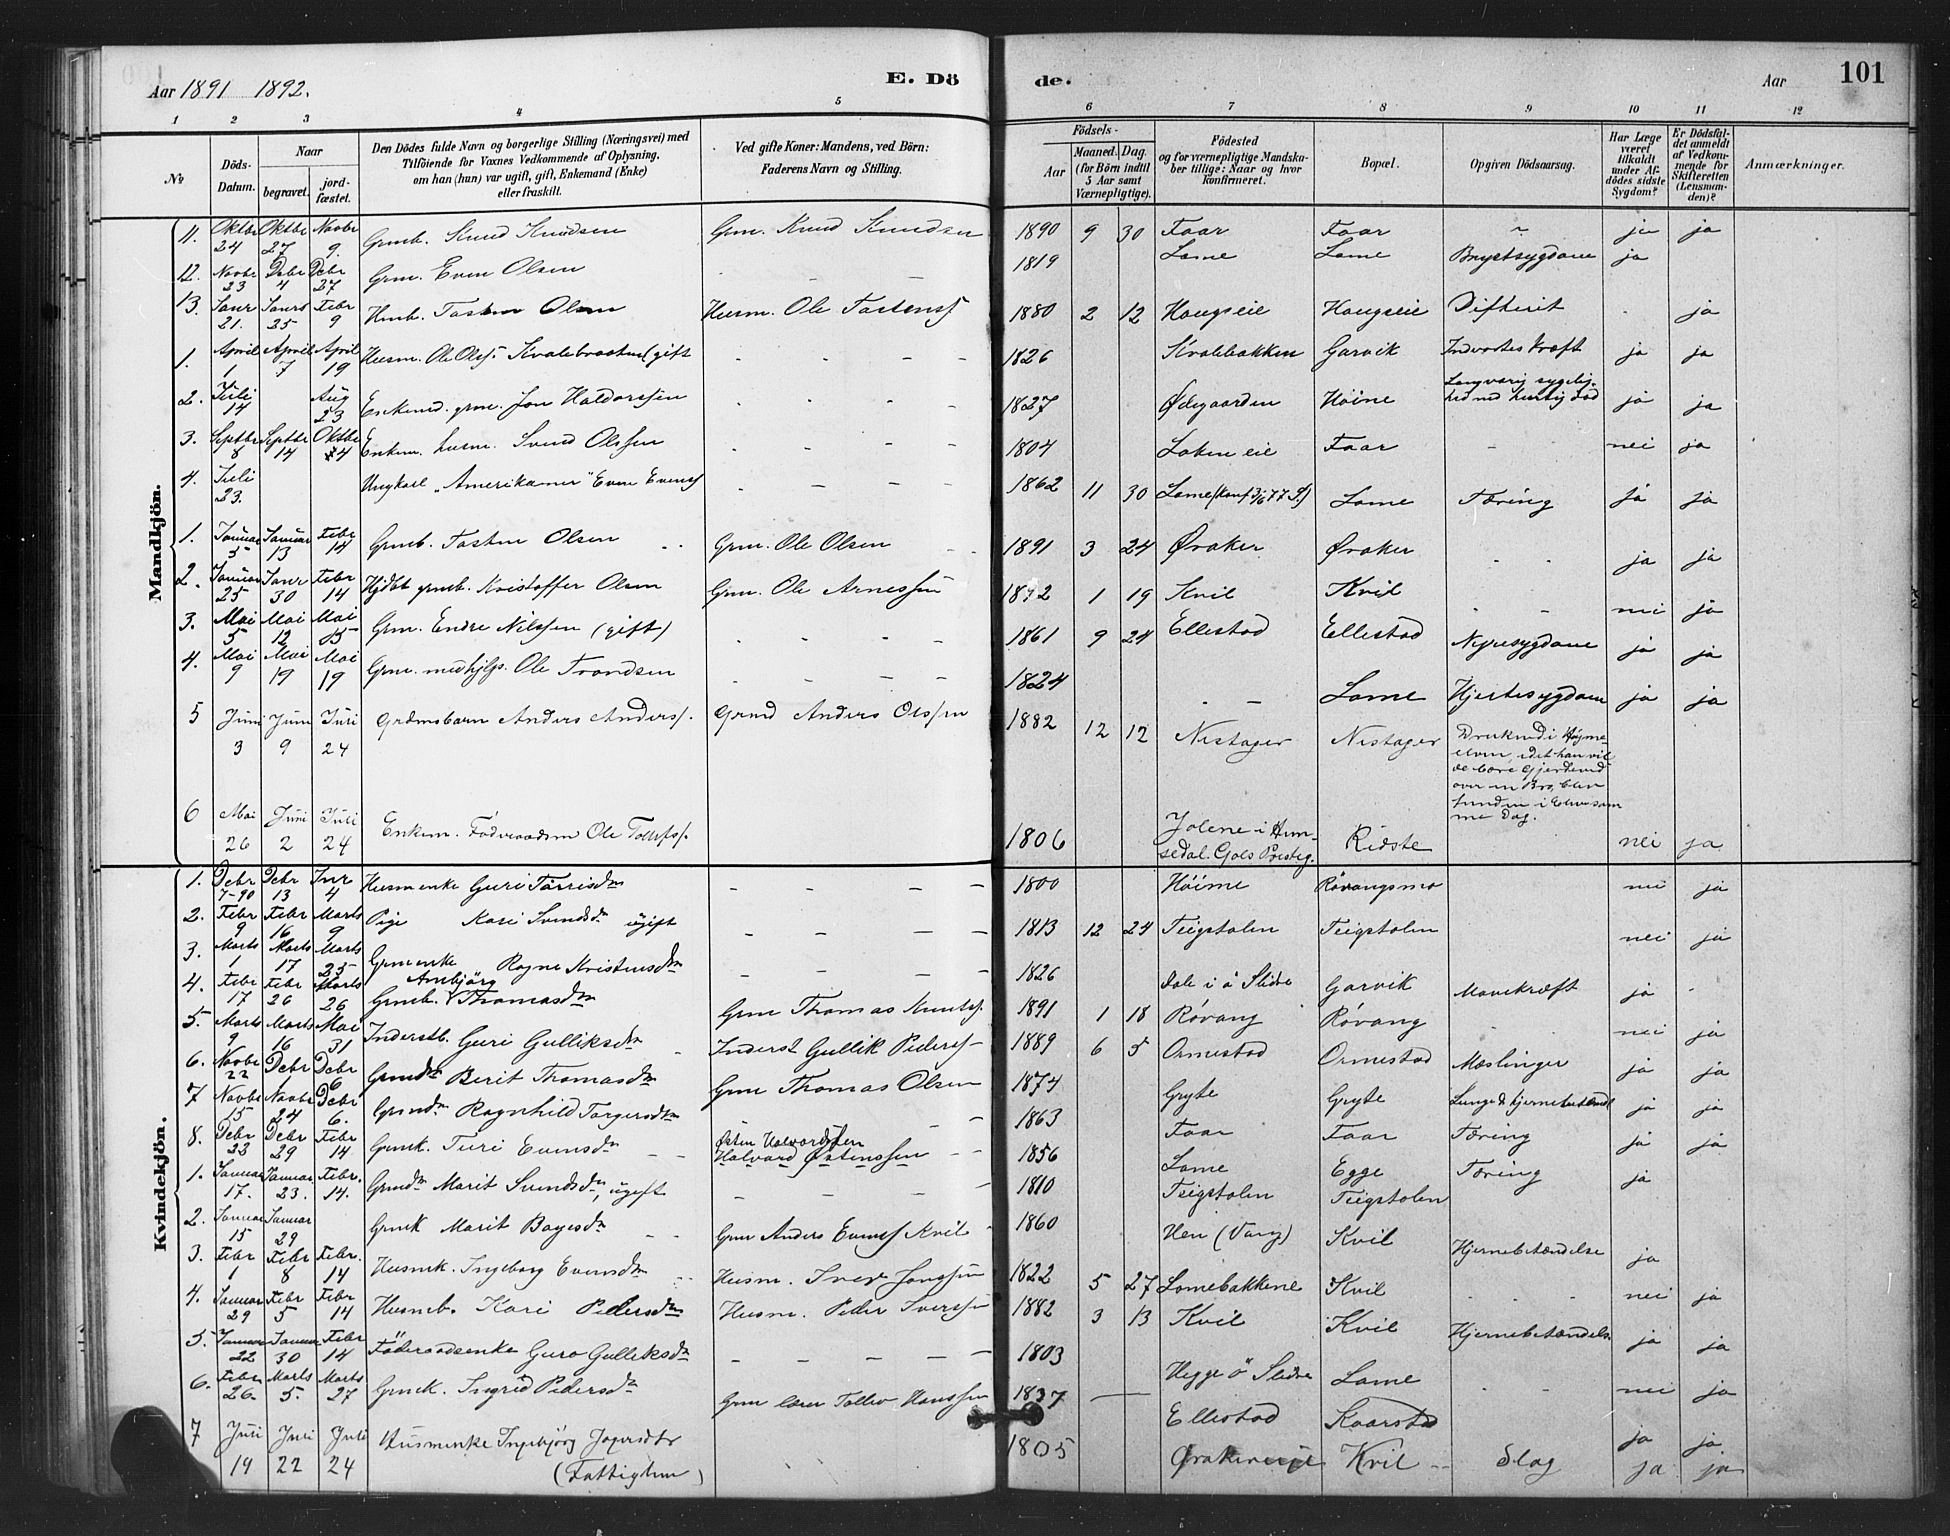 Aar 1891 1892.
E. Dö
de.
Aar
101
1 2 3 4 5 6 7 8 9 10 11 12
No
Döds-Datum.
Naar
begravet.
jord-fæstet.
Den Dödes fulde Navn og borgerlige Stilling (Næringsvei) med
Tilföiende for Voxnes Vedkommende af Oplysning,
om han (hun) var ugift, gift, Enkemand (Enke)
eller fraskilt.
Ved gifte Koner: Mandens, ved Börn:
Faderens Navn og Stilling.
Födsels-
Aar
Maaned. Dag.
(for Börn indtil
5 Aar samt
Værnepligtige).
Födested
og for værnepligtige Mandska-
ber tillige: Naar og hvor
konfirmeret.
Bopæl.
Opgiven Dödsaarsag.
Har Læge
været
tilkaldt
under Af-
dödes sidste
Sygdom?
Er Dödsful-
det anmeldt
af Vedkom-
mende for
Skifteretten
(Lensman-
den)?
Anmærkninger.
Mandkjön.
11. Oktbr 24 Oktbr 27 Novbr 9. Grmb. Knud Knudsen Grm. Knud Knudsen 1890 9 30 Faar Faar ja ja
12. Novbr 23 Debr 4 Debr 27 Grm. Even Olsen - - 1819 Lome Lome Brystsygdom ja
13. Janr 21. Janr 25 Febr 9 Husb. Tosten Olsen Husm. Ole Tostens 1880 2 12 Haugseie Haugseie Difterit ja
1. April 1 April 7 April 19 Husm. Ole Ols. Kvalebraaten (gift - - - 1826 Kvalebakken Garvik Indvortes Kræft ja ja
2. Juli 14 Aug 23 Enkemd. grm. Jon Haldorssen - - - 1827 Ødegaarden Höine Langvarig sygelig-
hed med hurtig Død ja ja
3. Septbr 8 Septbr 14 Oktbr 4 Enkem. husm. Svend Olssen - - - 1804 Loken eie Faar - nei ja
4. Juli 23. Ungkarl "Amerikaner" Even Evens - - - 1862 11 30 Lome (konf 3/6 77 S.) Lome Tæring ja ja
1. Januar 5 Januar 13 Febr 14 Grmb. Tosten Olsen Grm. Ole Olsen 1891 3 24 Øraker Øraker ja ja
2. Januar 25 Janr 30 Febr 14 Hjdöbt grmb. Kristoffer Olsen Grm. Ole Arnessen 1892 1 19 Kvil Kvil nei ja
3. Mai 5 Mai 12 Mai 15 Grm. Endre Nilssen (gift) - - - 1861 9 24 Ellestad Ellestad Nyresygdom ja ja
4. Mai 9 Mai 19 Mai 19 Grm. medhjlp. Ole Trondsen - - - 1824 - Lome Hjertesygdom ja ja
5 Juni 3 Juni 9 Juli 24 Grdmsbarn Anders Anders. Grmd Anders Olssen 1882 12 12 Nestager Nestager Druknede i Høgne-
elven, idet han vil-
de bære Gjerdeved
over en Bro, blev
funden i Elven sam
me Dag.
6 Mai 26 Juni 2 Juli 24 Enkem. Födraadsm Ole Tollefss. 1806 Jolene i Hem-
sedal. Gols Prestig. Ridste nei ja
Kvindekjön.
1. Debr 7-90 Debr 13 Jnr 4 Husmenke Guri Torrisdtr - - - 1800 Höime Rövangsmo nei ja
2. Febr 9 Febr 16 Marts 9 Pige Kari Svendsdtr ugift - - - 1813 12 24 Teigstolen Teigstolen nei ja
3. Marts 1 Marts 17 Marts 23 Grmenke Ragne Kristensdtr - - - 1826 Dale i ö Slidre Garvik Mavekræft ja -
4. Febr 17 Febr 26 Marts 26 Grmb. Ambjörg Thomasdtr Grm Thomas Knuts. 1891 1 18 Rövang Rövang nei ja
5. Marts 9 Marts 16 Mai 31 Inderstb. Guri Gulliksdtr Inderst Gullik Peders 1889 6 5 Ormestad Ormestad Mæslinger ja ja
6. Novbr 22 Debr 1 Debr 6 Grmdtr Berit Thomasdtr Grm Thomas Olsen 1874 Gryte Gryte Lunge & hjernebetændl ja ja
7 Novbr 15 Novbr 24 Debr 6. Grmdtr Ragnhild Torgersdtr - 1863 Faar Faar Tæring ja ja
8. Debr 22 Debr 29 Febr 14 Grmk. Turi Evensdtr Østen Halvordssen
Halvard Østenssen 1856 Lome Egge Tæring ja
1. Januar 17. Januar 23. Febr. 14. Grmdtr Marit Svendsdtr, ugift - - - 1810 Teigstolen Teigstolen
2. Januar 15 Januar 29 Grmk Marit Boyesdtr Grm Anders Evens Kvil 1860 Hen (Vang) Kvil Hjernebetændelse ja
3. Febr 1 Febr 8 Febr. 14 Husmk. Ingeborg Evensdtr Husm. Iver Jonssen 1822 5 27 Lomebakkene Kvil nei ja
4. Januar 29 Febr 5 Febr 14 Husmb. Kari Pedersdtr Husm. Peder Iverssen 1882 3 13 Kvil Kvil Hjernebetændels. ja ja
5. Januar 22 Januar 30 Febr 14 Föderaadsenke Guro Gulliksdtr - - - 1803 Hegge ö Slidre Lome nei ja
6. Febr 26. Marts 5. Marts 27 Grmk. Ingrid Pedersdtr Grm lærer Tollev Hanssen 1837 Ellestad Kaarstad ja ja
7 Juli 19 Juli 22 Juli 24 Husmenke Ingebjörg
(Fattiglem) 1805 Kvil Slag ja ja